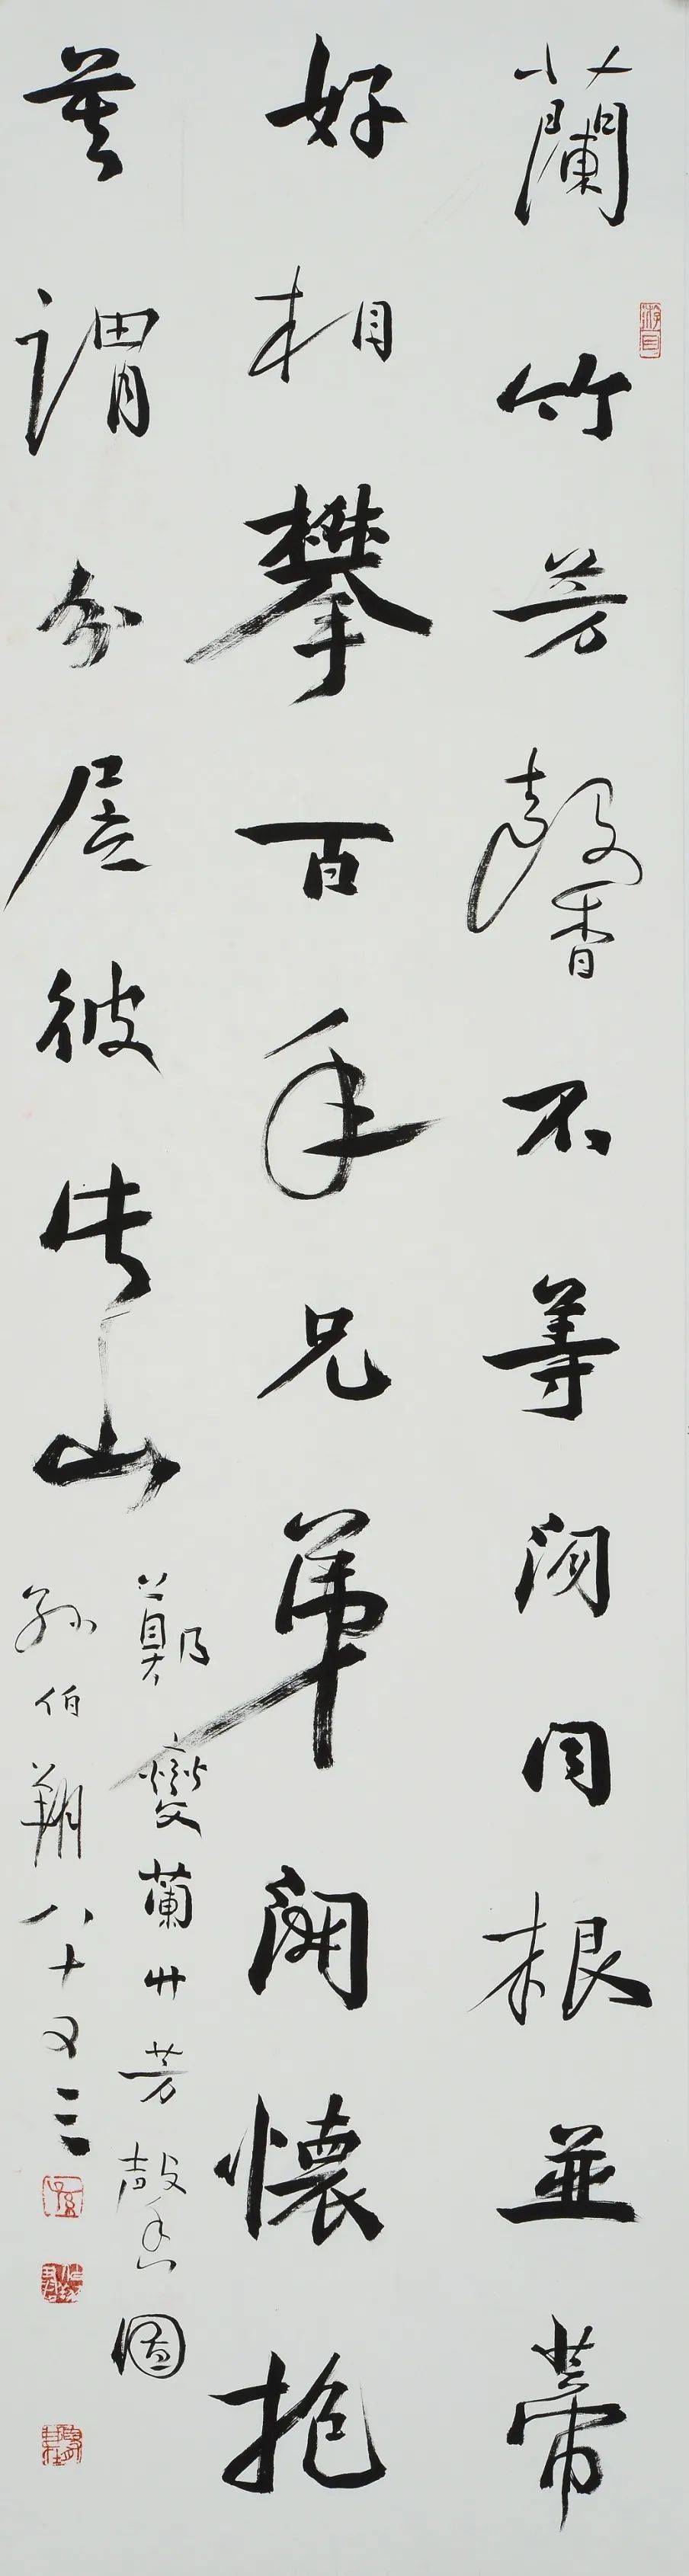 蘭竹芳馨不等閑同根並蒂
好相攀百年兄弟開懷抱
莫謂分居彼此山
鄭燮蘭竹芳馨圖
孫伯翔八十又三
游目